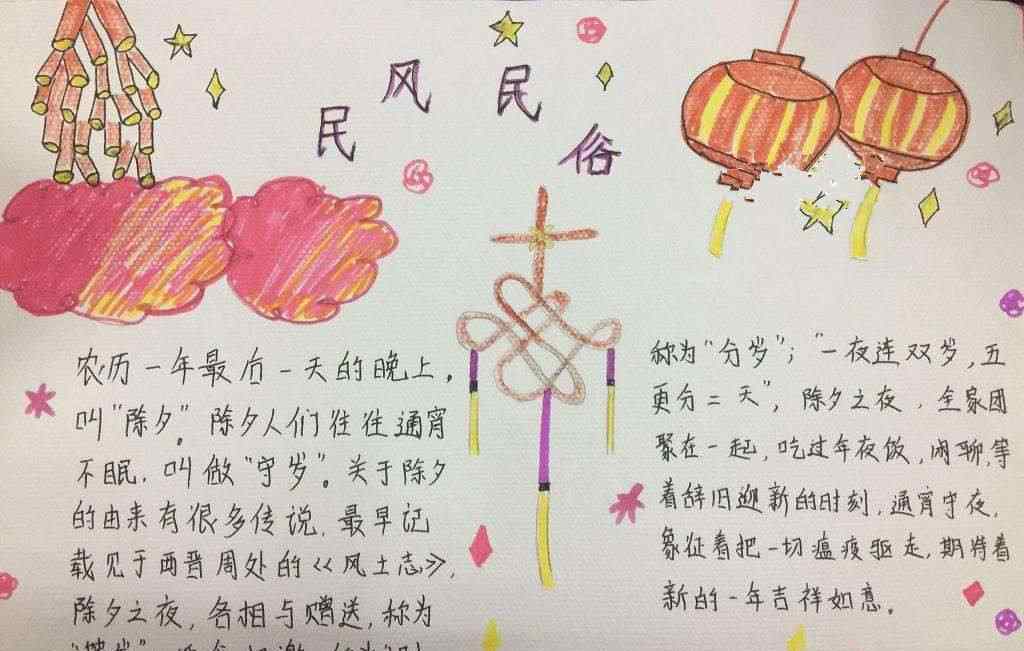 民风民俗
农历一年最后一天的晚上,
叫“除夕”。除夕人们往往通宵
不眠,叫做“守岁”。关于除夕
的由来有很多传说,最早记
载见于西晋周处的《风土志》,
除夕之夜,各相与赠送,称为
称为“分岁”;“一夜连双岁,五
更分二天”,除夕之夜,全家团
聚在一起,吃过年夜饭,闲聊,等
着辞旧迎新的时刻,通宵守夜,
象征着把一切瘟疫驱走,期待着
新的一年吉祥如意。